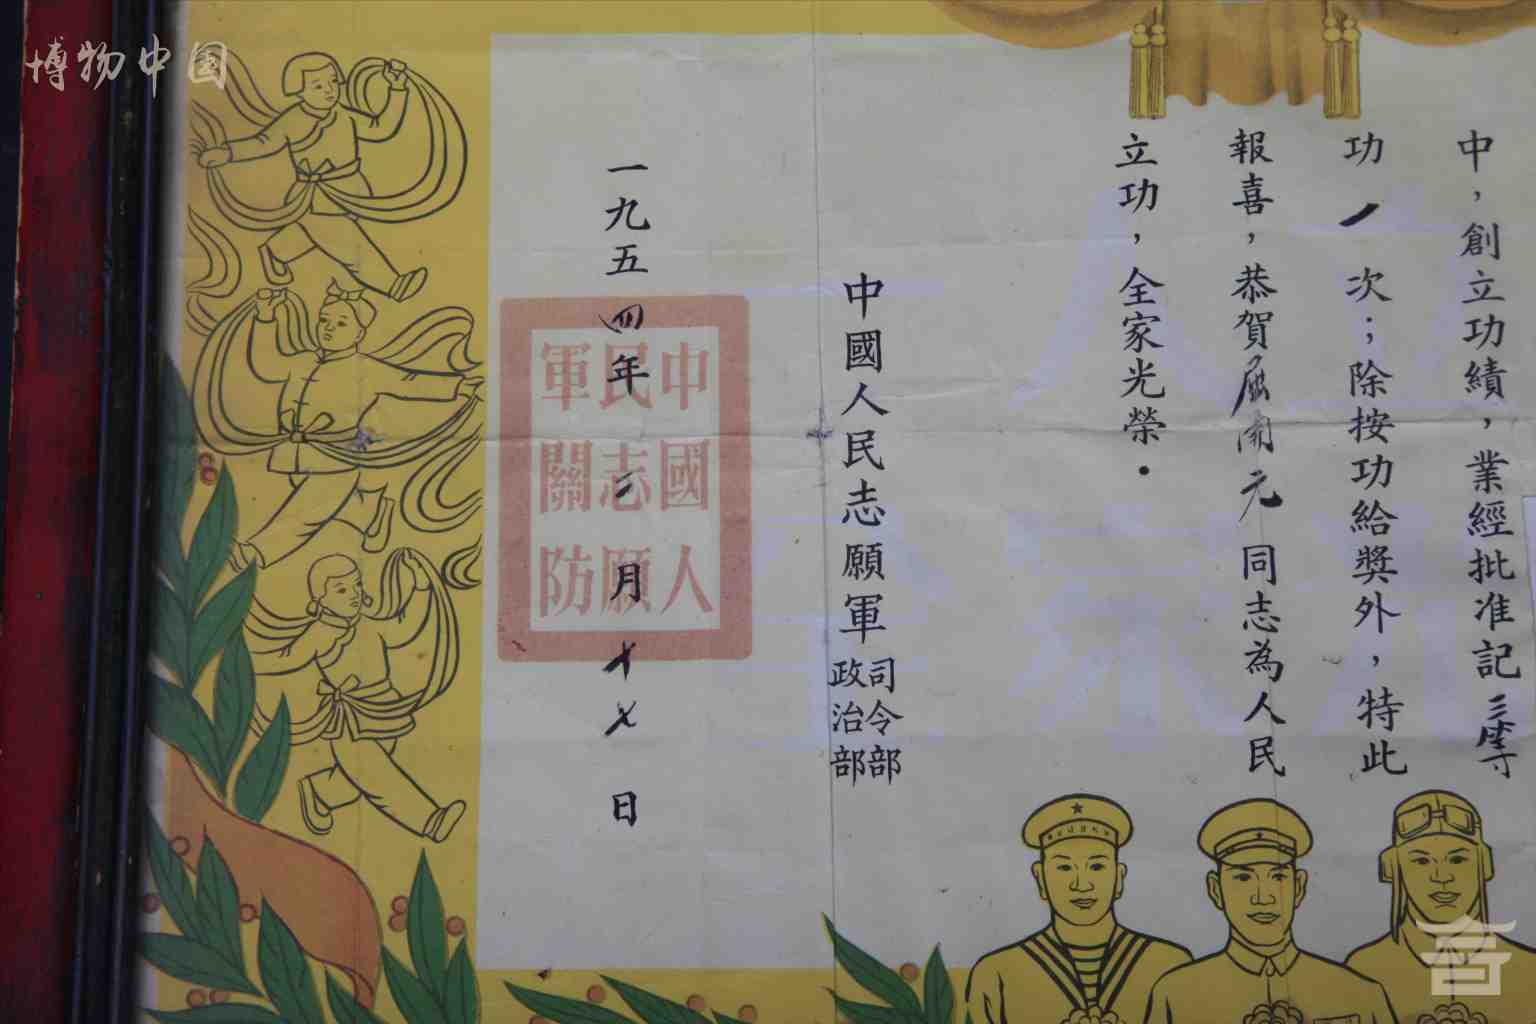 博物中国
中，創立功績，業經批准記三等
功一次；除按功給獎外，特此
報喜，恭賀屈南元同志為人民
立功，全家光榮．
中國人民志願軍
司令部
政治部
一九五四年二月十七日
中國人
民志願
軍關防